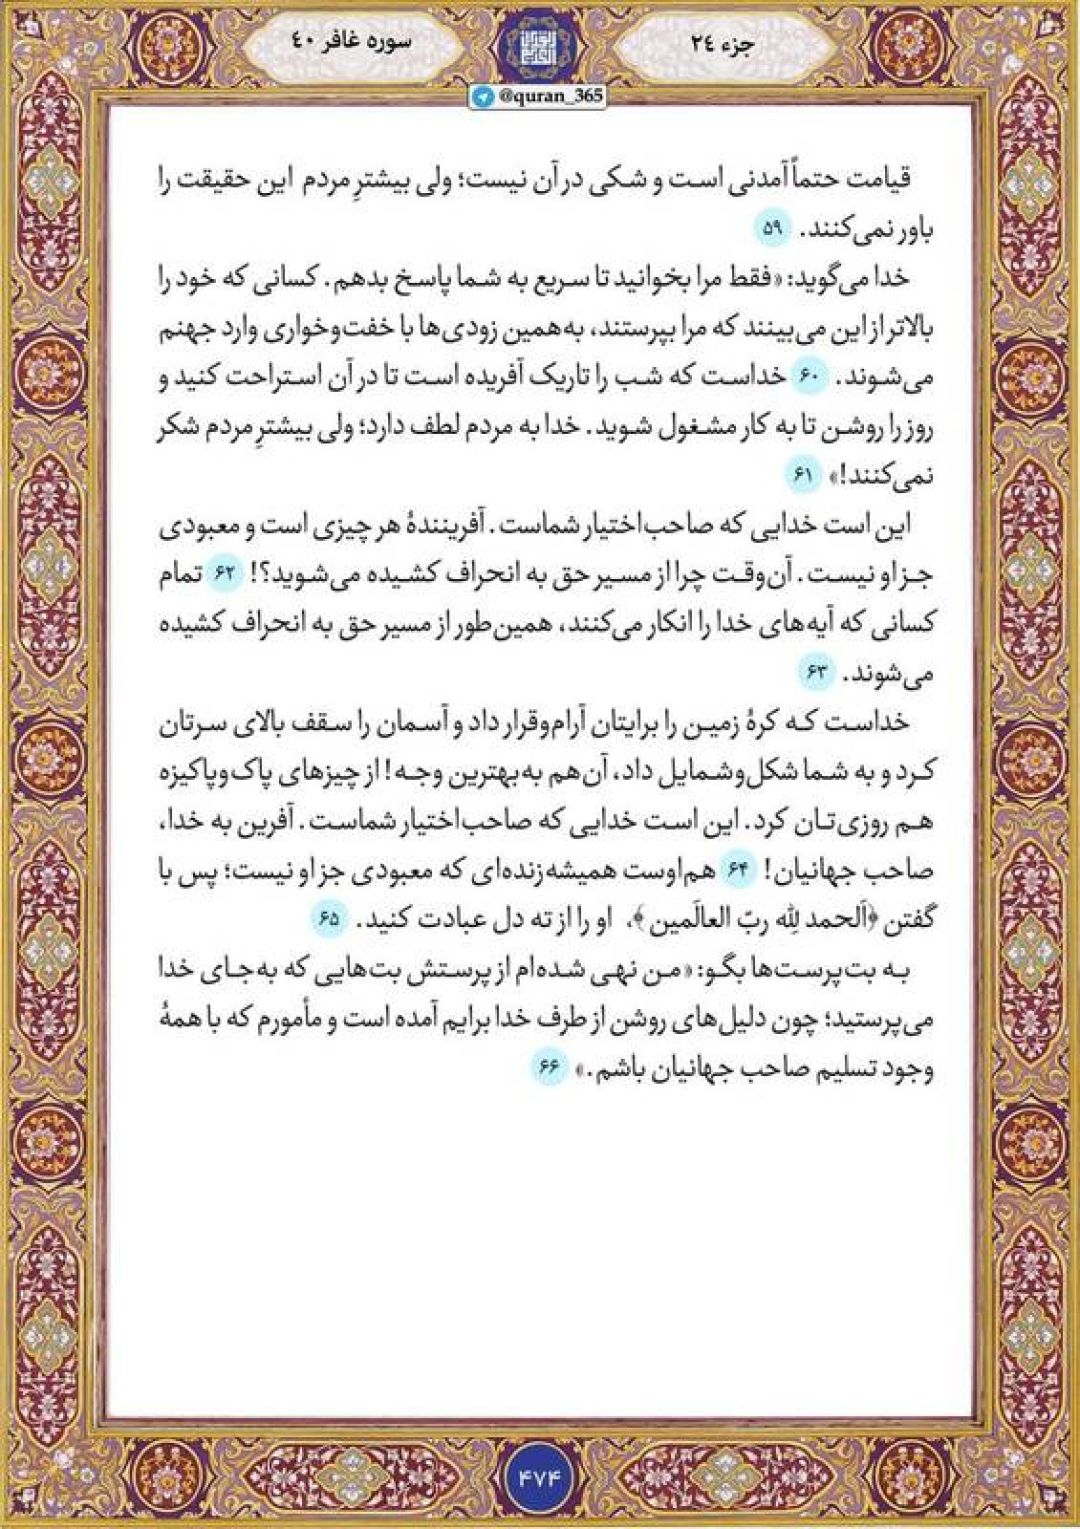 جزء ۲۴
سوره غافر ۴۰
@quran_365
قیامت حتماً آمدنی است و شکی در آن نیست؛ ولی بیشترِ مردم این حقیقت را
باور نمی‌کنند. ۵۹
خدا می‌گوید: «فقط مرا بخوانید تا سریع به شما پاسخ بدهم. کسانی که خود را
بالاتر از این می‌بینند که مرا بپرستند، به‌همین زودی‌ها با خفت‌وخواری وارد جهنم
می‌شوند. ۶۰ خداست که شب را تاریک آفریده است تا در آن استراحت کنید و
روز را روشن تا به کار مشغول شوید. خدا به مردم لطف دارد؛ ولی بیشترِ مردم شکر
نمی‌کنند!» ۶۱
این است خدایی که صاحب‌اختیار شماست. آفرینندهٔ هر چیزی است و معبودی
جز او نیست. آن‌وقت چرا از مسیر حق به انحراف کشیده می‌شوید؟! ۶۲ تمام
کسانی که آیه‌های خدا را انکار می‌کنند، همین‌طور از مسیر حق به انحراف کشیده
می‌شوند. ۶۳
خداست که کرهٔ زمین را برایتان آرام‌وقرار داد و آسمان را سقف بالای سرتان
کرد و به شما شکل‌وشمایل داد، آن‌هم به‌بهترین وجه! از چیزهای پاک‌وپاکیزه
هم روزی‌تان کرد. این است خدایی که صاحب‌اختیار شماست. آفرین به خدا،
صاحب جهانیان! ۶۴ هم‌اوست همیشه‌زنده‌ای که معبودی جز او نیست؛ پس با
گفتن ﴿اَلحمد لِله ربّ العالَمین﴾، او را از ته دل عبادت کنید. ۶۵
به بت‌پرست‌ها بگو: «من نهی شده‌ام از پرستش بت‌هایی که به‌جای خدا
می‌پرستید؛ چون دلیل‌های روشن از طرف خدا برایم آمده است و مأمورم که با همهٔ
وجود تسلیم صاحب جهانیان باشم.» ۶۶
۴۷۴